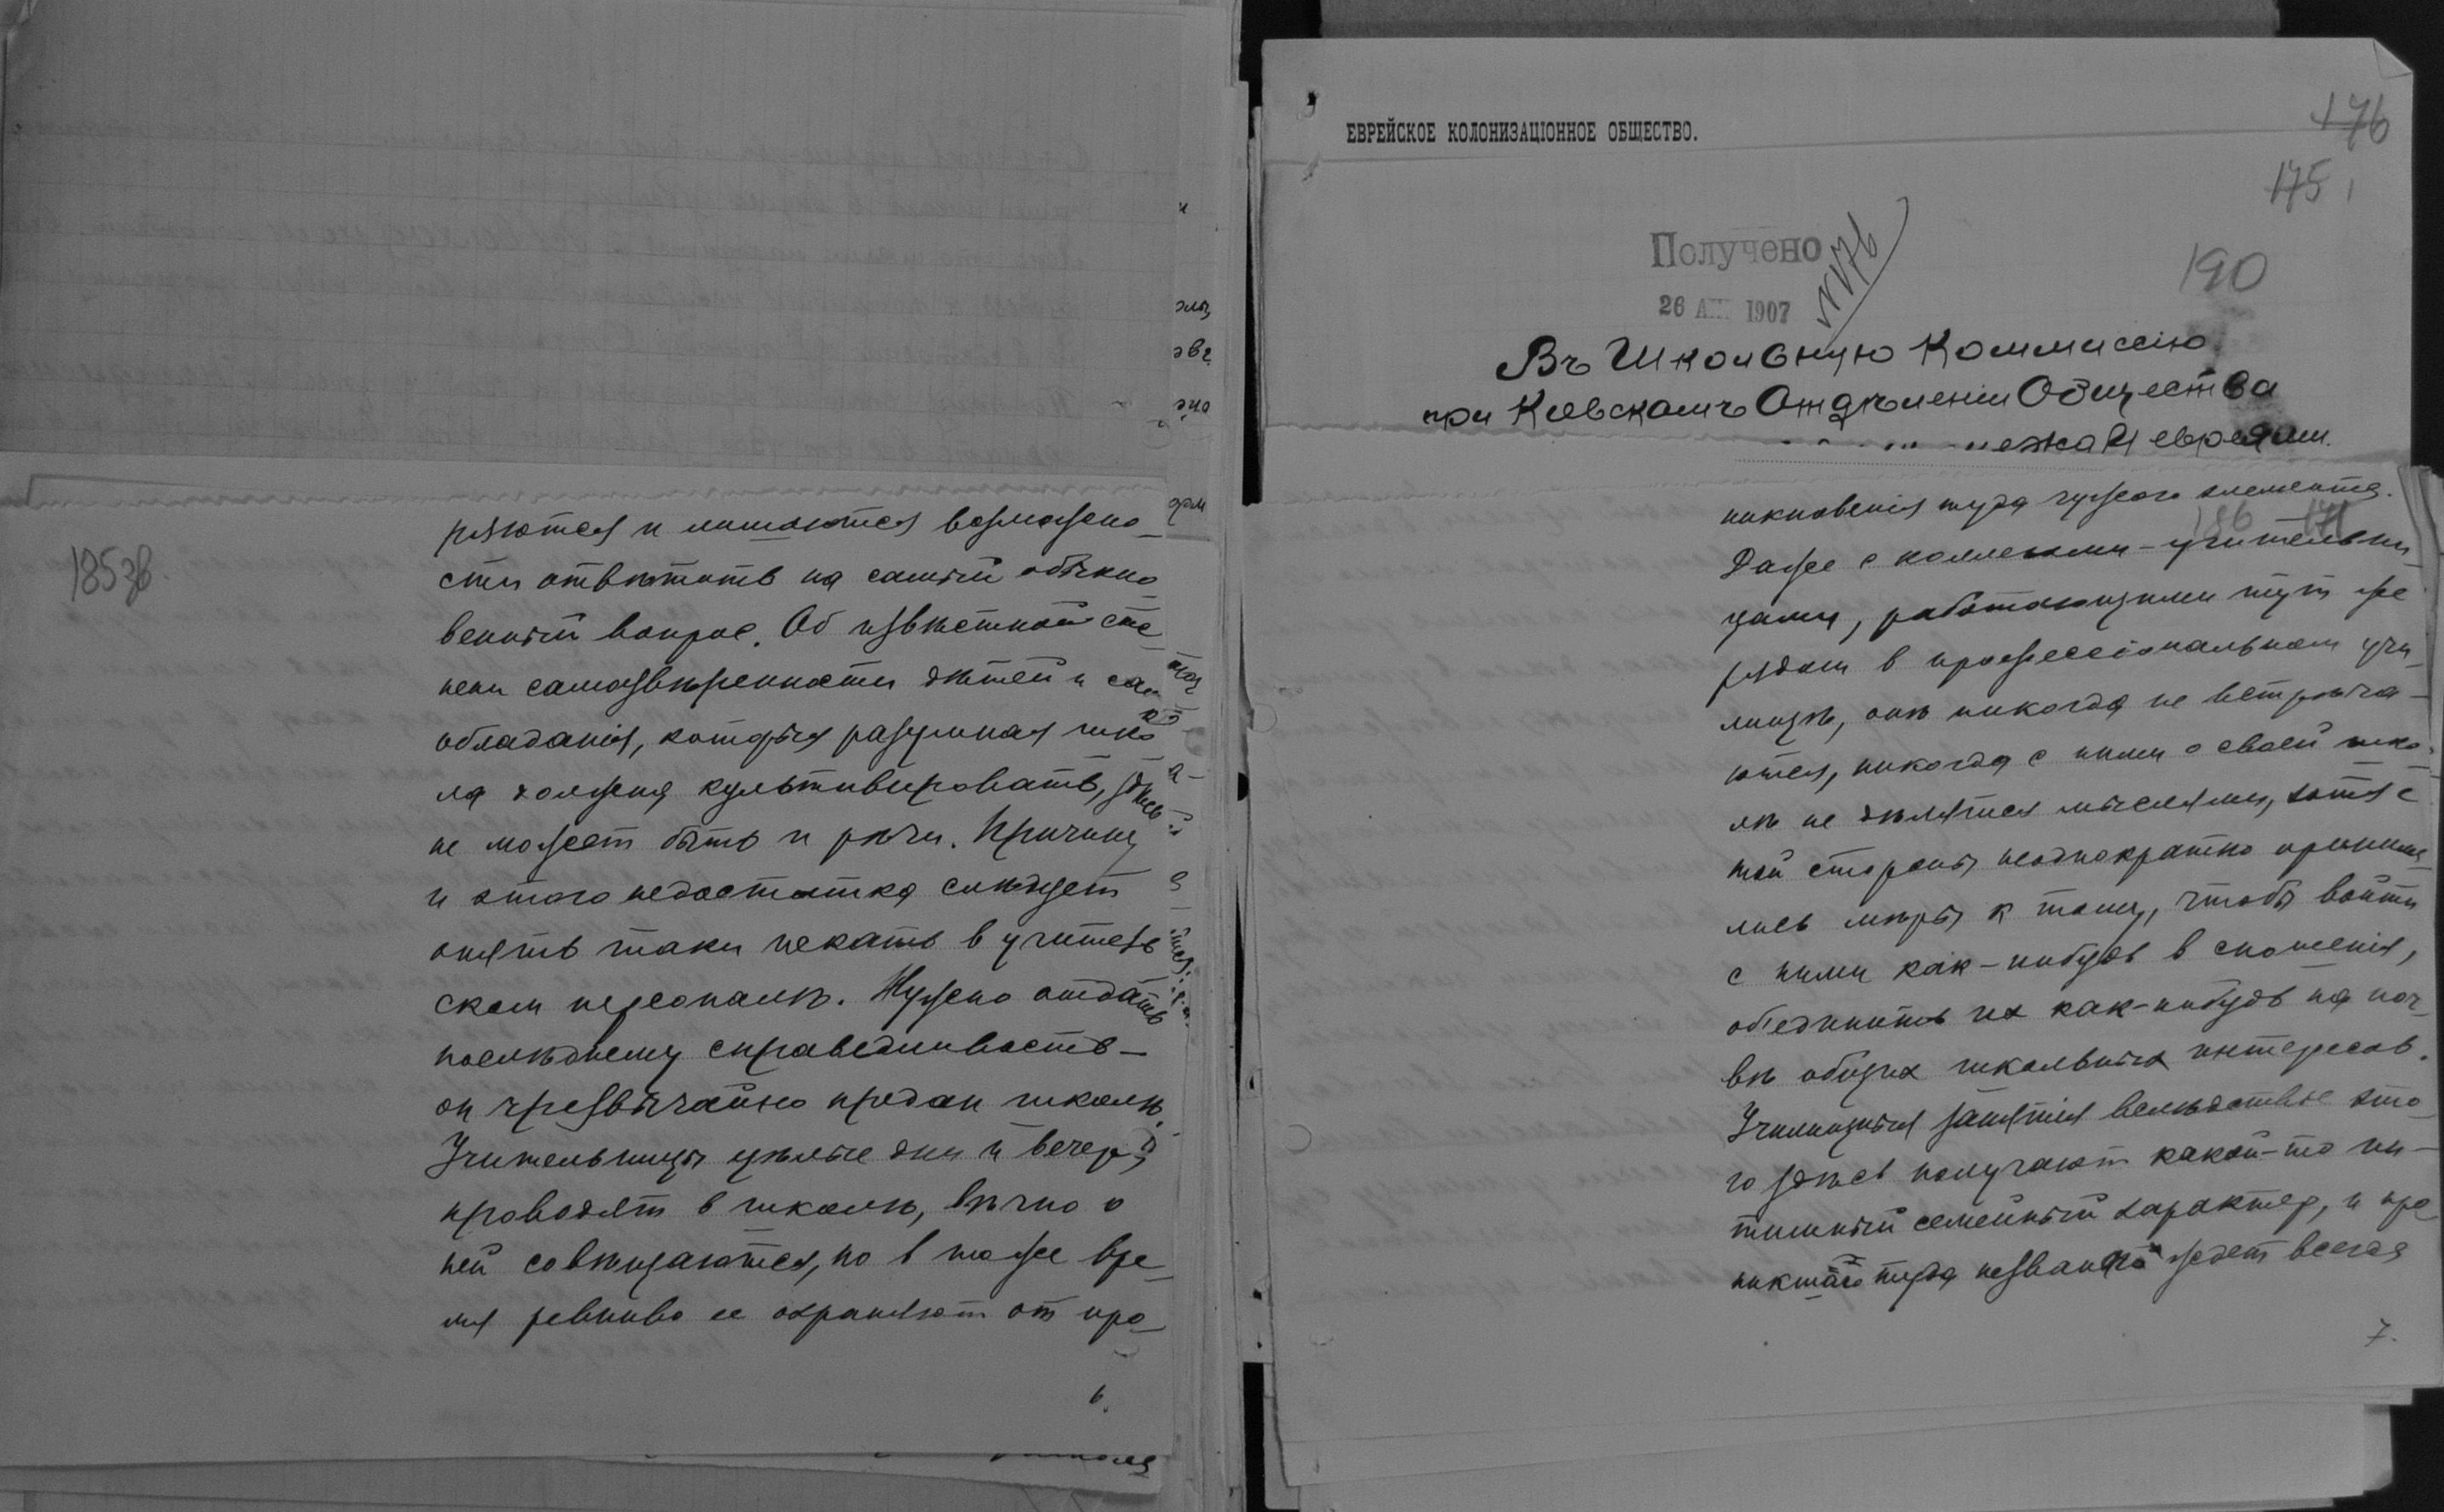 185 об.
ряются и лишаются возможно-
сти отвѣтить на самый обыкно-
венный вопрос. Об извѣстной сте-
пени самоувѣренности дѣтей и само-
обладанія, которыя разумная шко-
ла должна культивировать, здѣсь
не может быть и рѣчи. Причину
и этого недостатка слѣдует
опять таки искать в учитель-
ском персоналѣ. Нужно отдать
послѣднему справедливость —
он чрезвычайно предан школѣ.
Учительницы цѣлые дни и вечера
проводят в школѣ, вѣчно о
ней совѣщаются, но в то же вре-
мя ревниво ее охраняют от про-
6.
ЕВРЕЙСКОЕ КОЛОНИЗАЦІОННОЕ ОБЩЕСТВО.
176
175
Получено
N 176
26 1907
190
Въ Школьную Коммиссію
при Кіевскомъ Отдѣленіи Общества
между евреями.
никновенія туда чужого элемента.
186 171
Даже с коллегами-учительни-
цами, работающими тут же
рядом в профессіональном учи-
лищѣ, онѣ никогда не встрѣча-
ются, никогда с ними о своей шко-
лѣ не дѣлятся мыслями, хотя с
той стороны неоднократно принима-
лись мѣры к тому, чтобы войти
с ними как-нибудь в сношенія,
объединить их как-нибудь на поч-
вѣ общих школьных интересов.
Училищныя занятія вслѣдствіе это-
го здѣсь получают какой-то ин-
тимный семейный характер, и про-
никшаго туда незванаго ждет всегда
7.